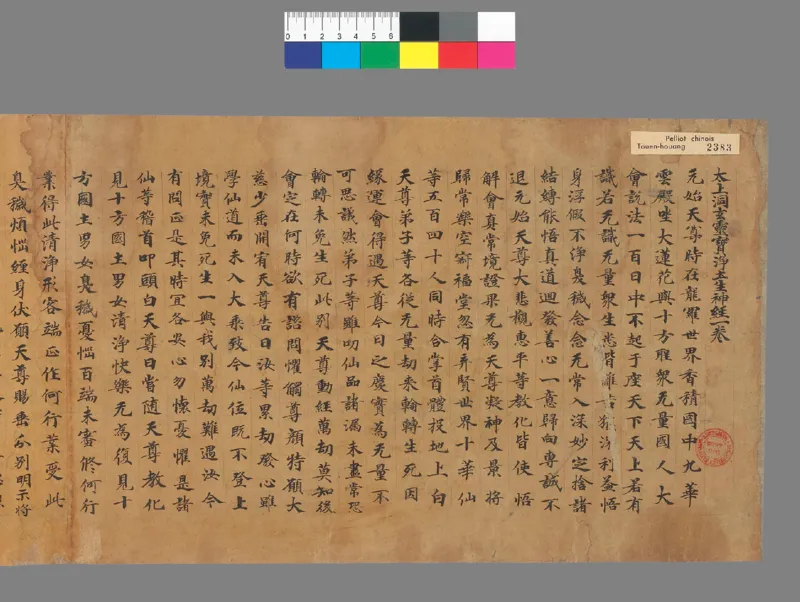 Pelliot chinois
Touen-houang 2383
0 1 2 3 4 5 6
太上洞玄靈寶淨土生神經一卷
元始天尊時在龍羅世界香積國中九華
雲殿坐大蓮花與十方聖衆无量國人大
會說法一百日中不起于座天下天上若有
識若无識无量衆生悉皆離苦獲淨利益悟
身浮假不淨臭穢念念无常入深妙定捨諸
結縛能悟真道迴發善心一意歸向專誠不
退元始天尊大悲觀惠平等教化皆使悟
解會真常境證果无為天尊凝神及景將
歸常樂空寂福堂忽有弃賢世界十華仙
等五百四十人同時合掌首體投地上白
天尊弟子等各從无量劫來輪轉生死因
緣運會得遇天尊今日之慶實為无量不
可思議然弟子等雖叨仙品諸漏未盡常恐
輪轉未免生死此別天尊動經萬劫莫知後
會定在何時欲有諮問懼觸尊顔特願大
慈少垂開宥天尊告曰汝等累劫發心雖
學仙道而未入大乘致令仙位既不登上
境實未免死生一與我別萬劫難遇汝今
有問正是其時宜各安心勿懷憂懼是諸
仙等稽首叩頭白天尊曰嘗隨天尊教化
見十方國土男女清淨快樂无為復見十
方國土男女臭穢憂惱百端未審修何行
業得此清淨形容端正作何行業受此
臭穢煩惱纏身伏願天尊賜垂分別明示將